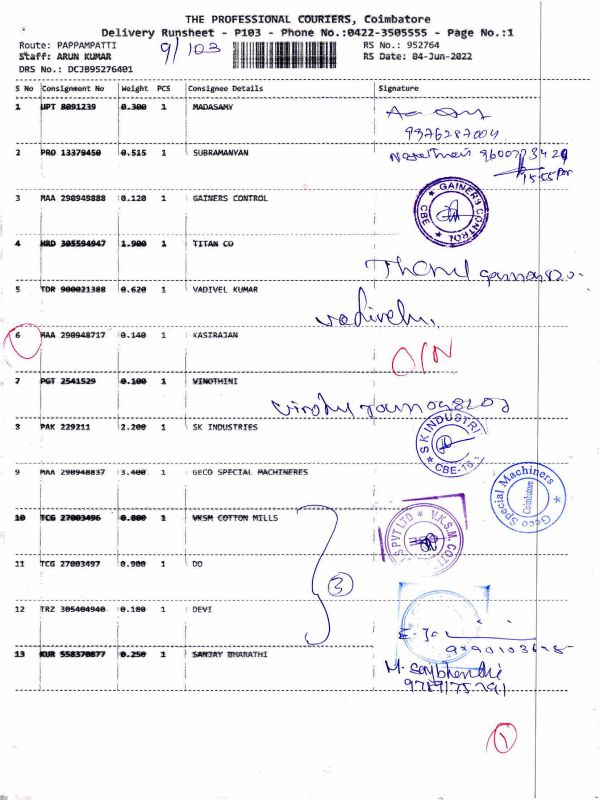 THE PROFESSIONAL COURIERS, Coimbatore
Delivery Runsheet - P103 - Phone No.:0422-3505555 - Page No.:1
Route: PAPPAMPATTI 9/103 RS No.: 952764
Staff: ARUN KUMAR RS Date: 04-Jun-2022
DRS No.: DCJB95276401
S No Consignment No Weight PCS Consignee Details Signature
1 UPT 8091239 0.300 1 MADASAMY
2 PRO 13379450 0.515 1 SUBRAMANYAN
3 MAA 290949888 0.120 1 GAINERS CONTROL
GAINERS CONTROL CBE
4 HRD 305594947 1.900 1 TITAN CO
5 TDR 900021388 0.620 1 VADIVEL KUMAR
Vadivelu.
6 MAA 290948717 0.140 1 KASIRAJAN
O/N
7 PGT 2541529 0.100 1 VINOTHINI
8 PAK 229211 2.200 1 SK INDUSTRIES
SK INDUSTRI
CBE-16
9 MAA 290948837 3.400 1 GECO SPECIAL MACHINERES
Geco Special Machiners
Coimbatore
10 TCG 27003496 0.800 1 VKSM COTTON MILLS
S PVT LTD * V.K.S.M. COT
11 TCG 27003497 0.900 1 DO
3
12 TRZ 305404940 0.180 1 DEVI
13 KUR 558370877 0.250 1 SANJAY BHARATHI
1